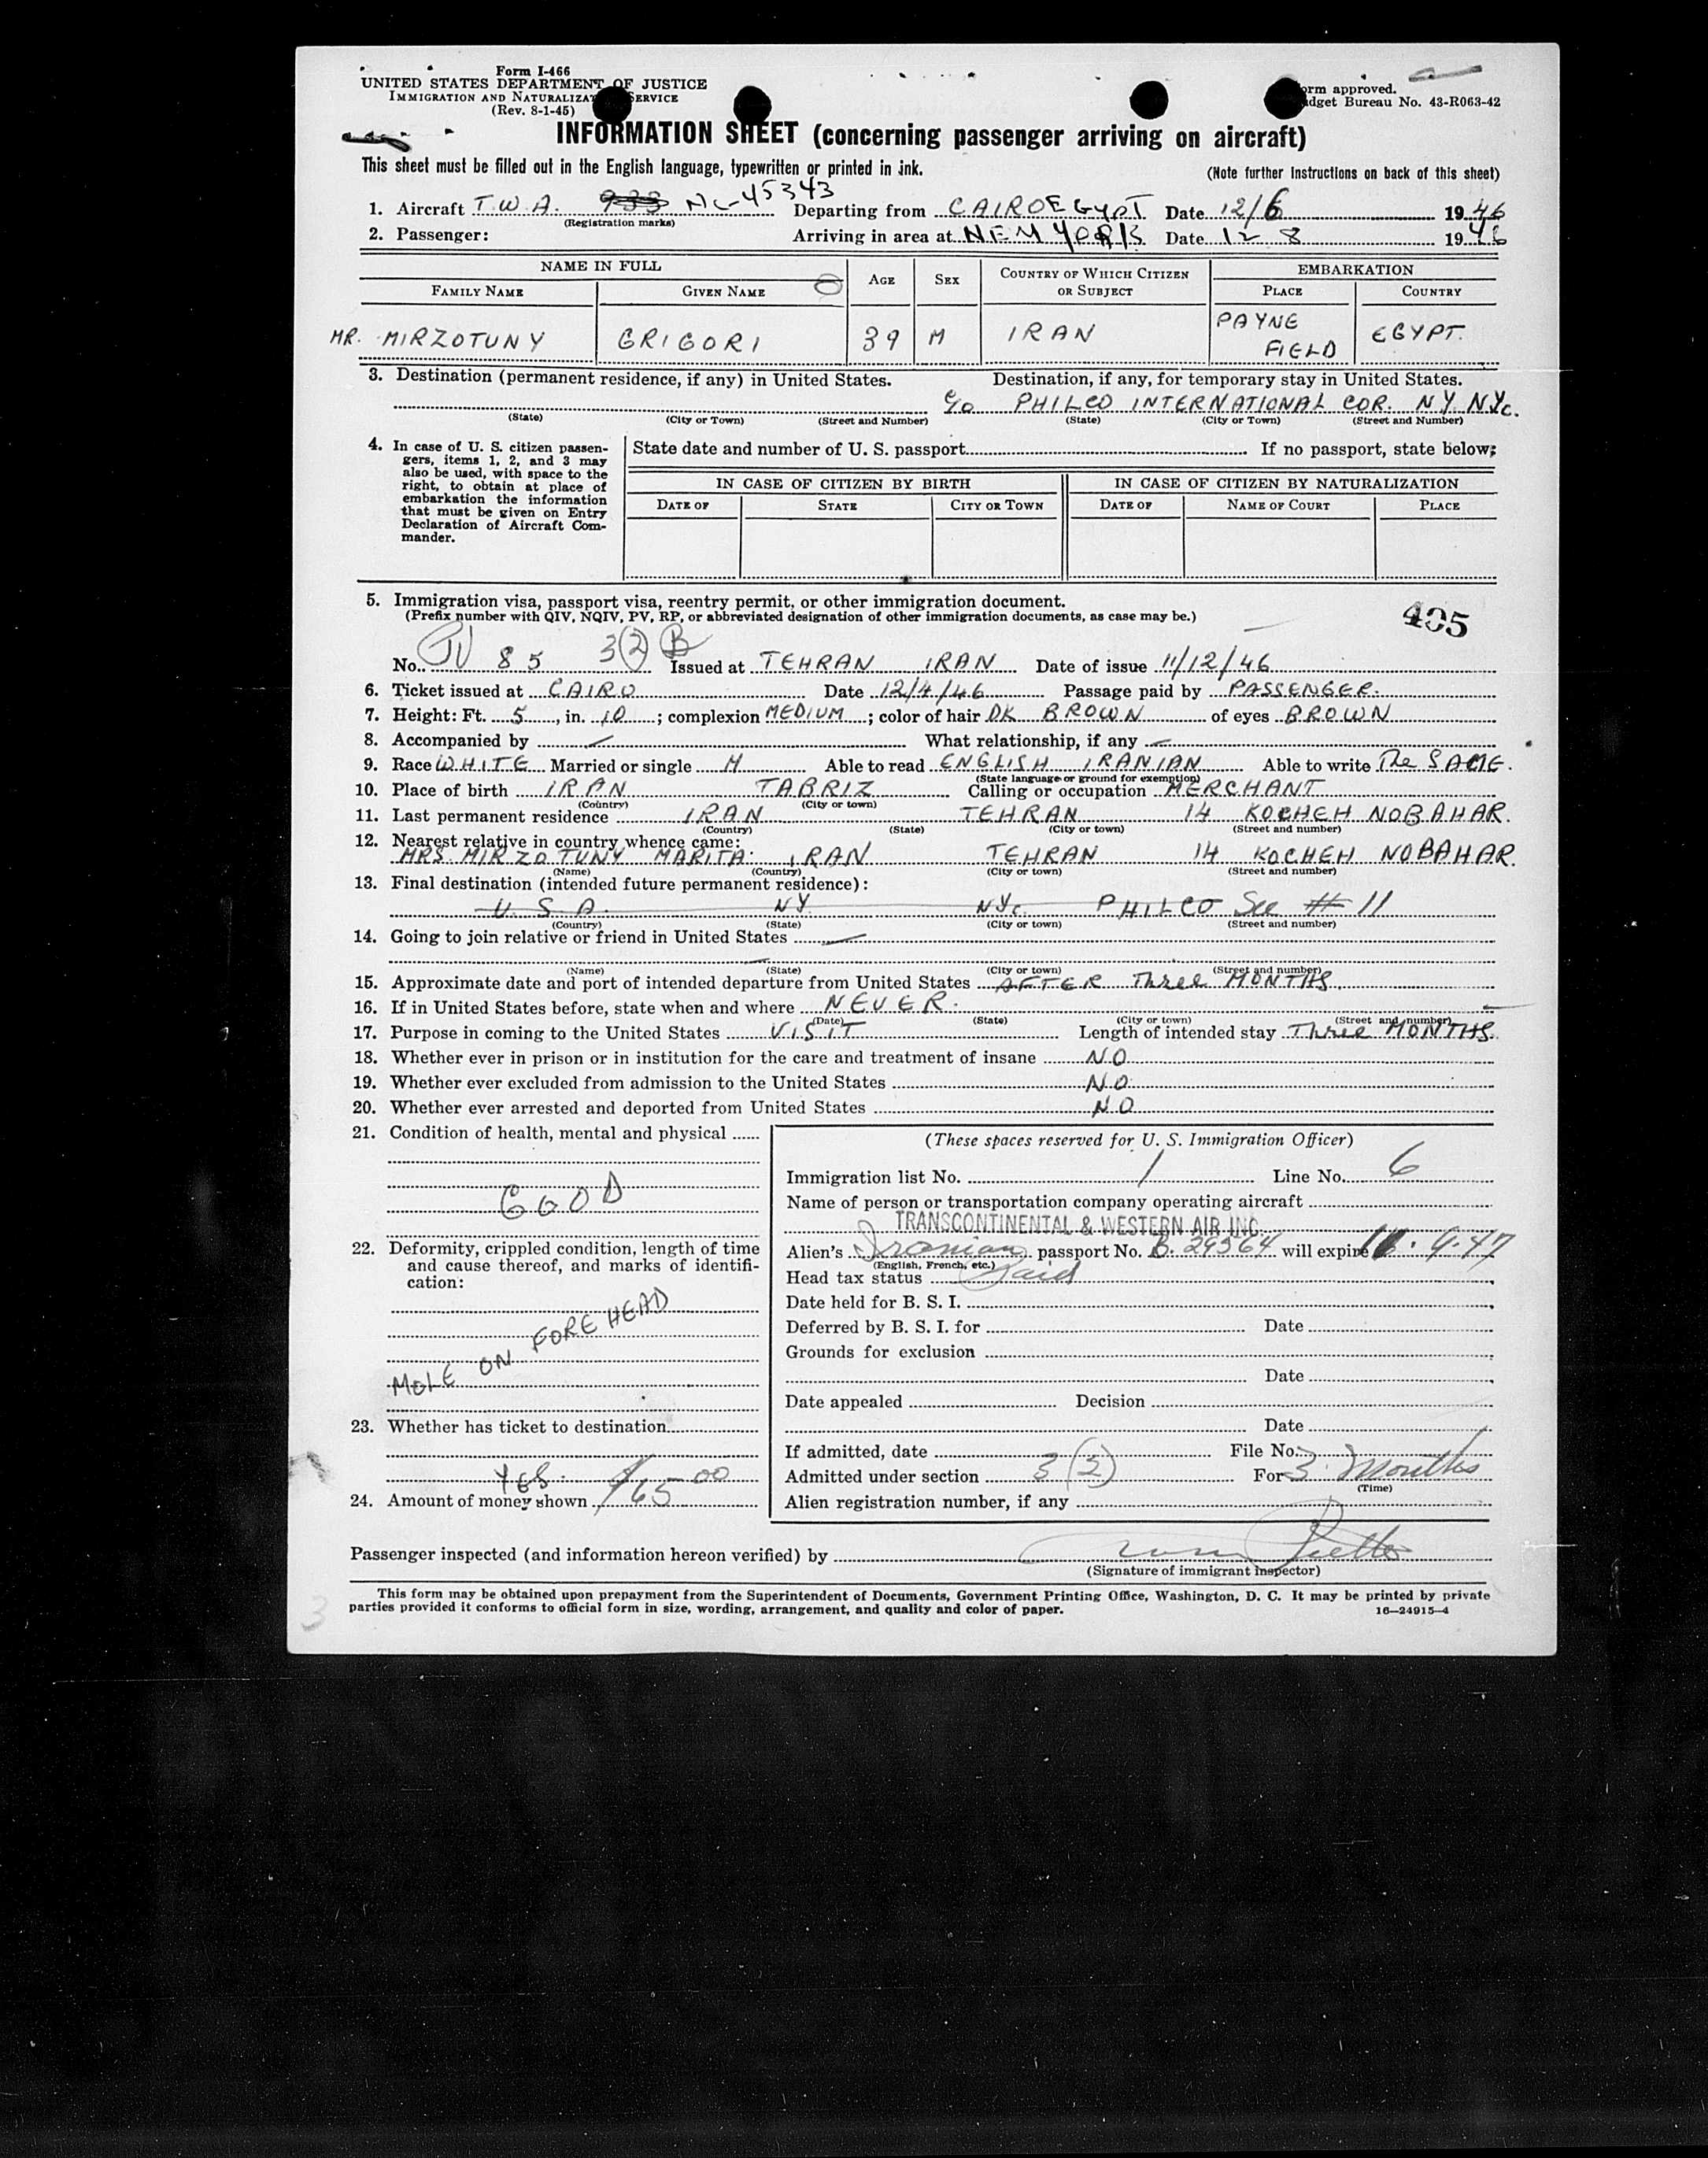 Form I-466
UNITED STATES DEPARTMENT OF JUSTICE
IMMIGRATION AND NATURALIZATION SERVICE
(Rev. 8-1-45)
Form approved.
Budget Bureau No. 43-R063-42
INFORMATION SHEET (concerning passenger arriving on aircraft)
This sheet must be filled out in the English language, typewritten or printed in ink. (Note further instructions on back of this sheet)
1. Aircraft T.W.A. 933 NC-45343 Departing from CAIRO EGYPT Date 12/6 1946
(Registration marks)
2. Passenger: Arriving in area at NEW YORK Date 12 8 1946
NAME IN FULL AGE SEX COUNTRY OF WHICH CITIZEN OR SUBJECT EMBARKATION
FAMILY NAME GIVEN NAME PLACE COUNTRY
MR. MIRZOTUNY GRIGORI 39 M IRAN PAYNE FIELD EGYPT.
3. Destination (permanent residence, if any) in United States. Destination, if any, for temporary stay in United States.
c/o PHILCO INTERNATIONAL COR. NY NYc.
(State) (City or Town) (Street and Number) (State) (City or Town) (Street and Number)
4. In case of U. S. citizen passengers, items 1, 2, and 3 may also be used, with space to the right, to obtain at place of embarkation the information that must be given on Entry Declaration of Aircraft Commander.
State date and number of U. S. passport If no passport, state below:
IN CASE OF CITIZEN BY BIRTH IN CASE OF CITIZEN BY NATURALIZATION
DATE OF STATE CITY OR TOWN DATE OF NAME OF COURT PLACE
5. Immigration visa, passport visa, reentry permit, or other immigration document.
(Prefix number with QIV, NQIV, PV, RP, or abbreviated designation of other immigration documents, as case may be.)
405
No. 85 3(2) B Issued at TEHRAN IRAN Date of issue 11/12/46
6. Ticket issued at CAIRO Date 12/4/46 Passage paid by PASSENGER.
7. Height: Ft. 5, in. 10; complexion MEDIUM; color of hair DK BROWN of eyes BROWN
8. Accompanied by — What relationship, if any —
9. Race WHITE Married or single M Able to read ENGLISH IRANIAN Able to write The SAME.
(State language or ground for exemption)
10. Place of birth IRAN TABRIZ Calling or occupation MERCHANT
(Country) (City or town)
11. Last permanent residence IRAN TEHRAN 14 KOCHEH NOBAHAR.
(Country) (State) (City or town) (Street and number)
12. Nearest relative in country whence came:
MRS. MIRZOTUNY MARITA. IRAN TEHRAN 14 KOCHEH NOBAHAR.
(Name) (Country) (City or town) (Street and number)
13. Final destination (intended future permanent residence):
U.S.A. NY NYc. PHILCO See # 11
(Country) (State) (City or town) (Street and number)
14. Going to join relative or friend in United States —
(Name) (State) (City or town) (Street and number)
15. Approximate date and port of intended departure from United States AFTER Three MONTHS.
16. If in United States before, state when and where NEVER.
(Date) (State) (City or town) (Street and number)
17. Purpose in coming to the United States VISIT Length of intended stay Three MONTHS.
18. Whether ever in prison or in institution for the care and treatment of insane NO
19. Whether ever excluded from admission to the United States NO
20. Whether ever arrested and deported from United States NO
21. Condition of health, mental and physical
GOOD
22. Deformity, crippled condition, length of time and cause thereof, and marks of identification:
MOLE ON FOREHEAD
23. Whether has ticket to destination
YES.
24. Amount of money shown $165-00
(These spaces reserved for U. S. Immigration Officer)
Immigration list No. 1 Line No. 6
Name of person or transportation company operating aircraft
TRANSCONTINENTAL & WESTERN AIR INC.
Alien's Iranian passport No. B. 29364 will expire 11.9.47
(English, French, etc.)
Head tax status Paid
Date held for B. S. I.
Deferred by B. S. I. for Date
Grounds for exclusion
Date
Date appealed Decision
Date
If admitted, date File No.
Admitted under section 3(2) For 3 Months
(Time)
Alien registration number, if any
Passenger inspected (and information hereon verified) by
(Signature of immigrant inspector)
This form may be obtained upon prepayment from the Superintendent of Documents, Government Printing Office, Washington, D. C. It may be printed by private
parties provided it conforms to official form in size, wording, arrangement, and quality and color of paper. 16—24915-4
3